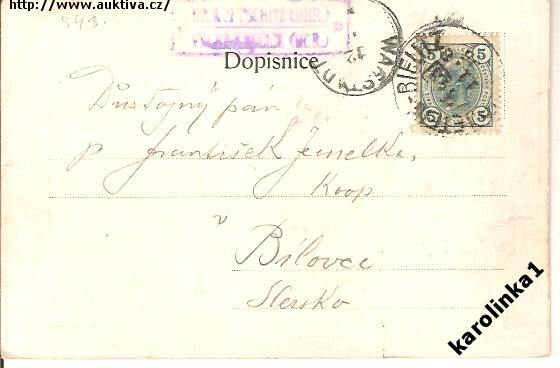 http://www.auktiva.cz/
543.
Dopisnice
WAGSTADT
BIELITZ
5 5
5 5
Důstojný pán
p František Jemelka,
Koop
v
Bílovci
Slezsko
karolinka1